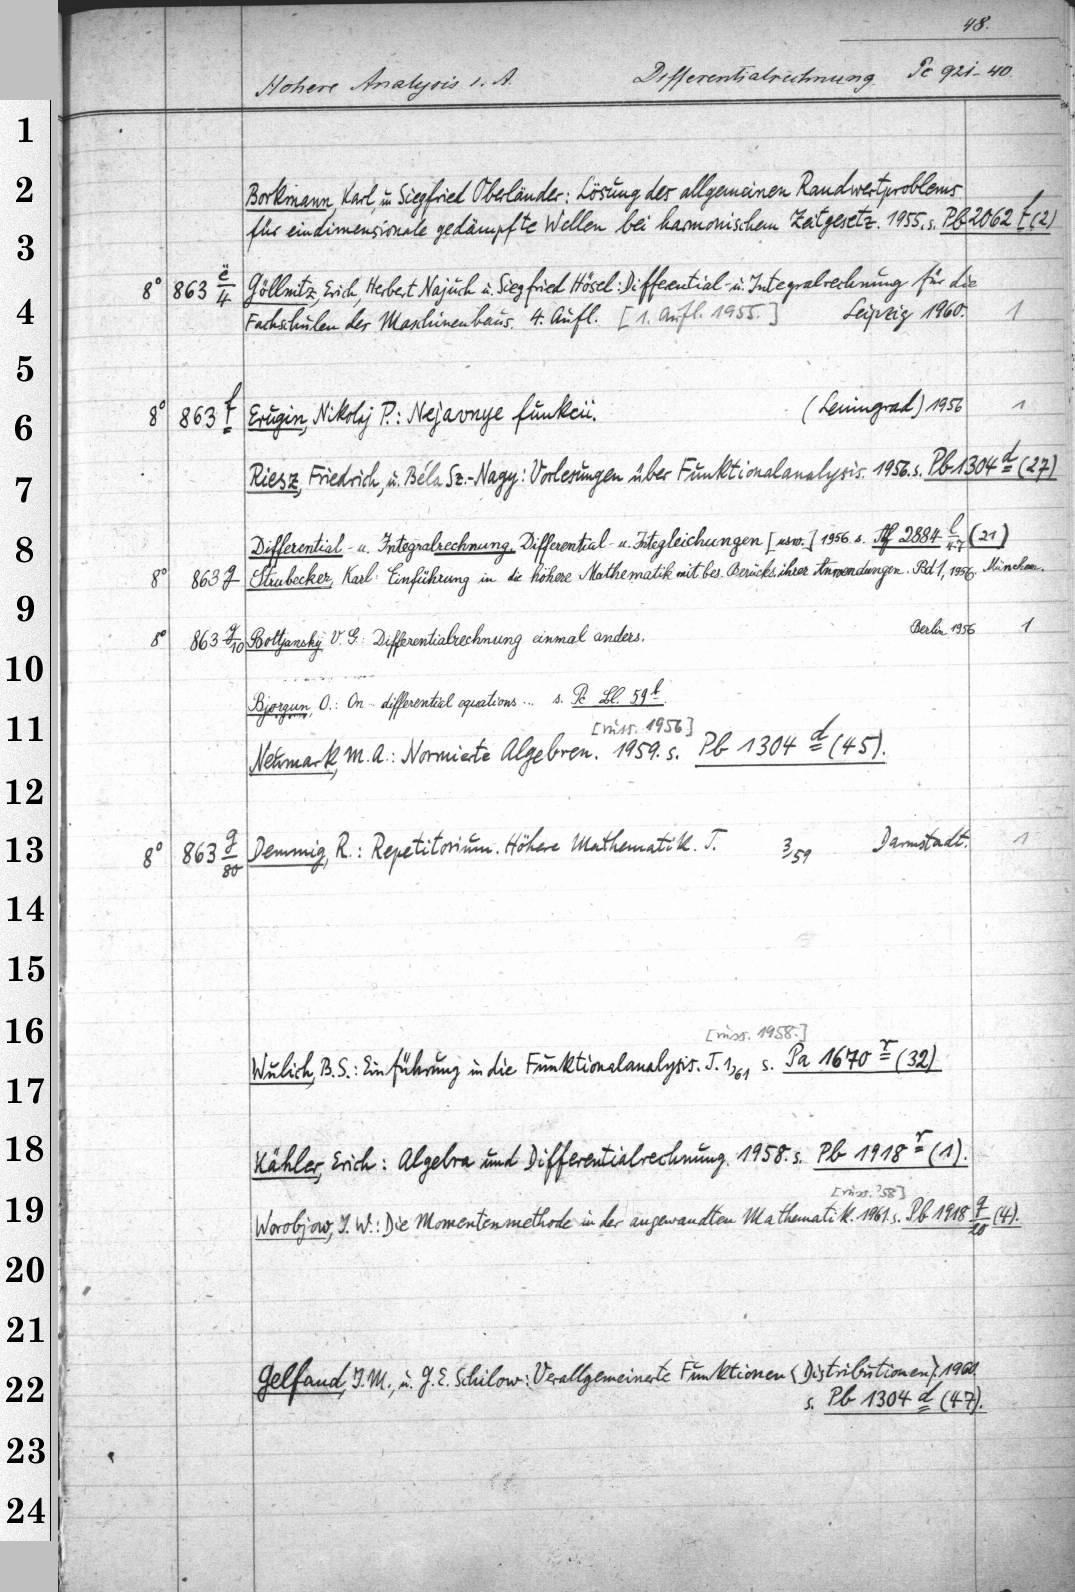 48.
Höhere Analysis i. A. Differentialrechnung Pc 921-40.
1
2
Borkmann, Karl, u. Siegfried Oberländer: Lösung des allgemeinen Randwertproblems
für eindimensionale gedämpfte Wellen bei harmonischem Zeitgesetz. 1955. s. Pb 2062 f (2)
3
8° 863 ë/4 Göllnitz, Erich, Herbert Najuch u. Siegfried Hösel: Differential- u. Integralrechnung für die
4
Fachschulen des Maschinenbaus. 4. Aufl. [1. Aufl. 1955.] Leipzig 1960. 1
5
8° 863 f Erugin, Nikolaj P.: Nejavnye funkcii. (Leningrad) 1956 1
6
Riesz, Friedrich, u. Béla Sz.-Nagy: Vorlesungen über Funktionalanalysis. 1956. s. Pb 1304 d (27)
7
Differential- u. Integralrechnung. Differential- u. Integleichungen [usw.] 1956. s. 2884 (21)
8
8° 863 g Strubecker, Karl: Einführung in die höhere Mathematik mit bes. Berücks. ihrer Anwendungen. Bd 1, 1956. München.
9
8° 863 g/10 Boltjansky V. G.: Differentialrechnung einmal anders. Berlin 1956 1
10
Bjorgun, O.: On differential equations ... s. Pc Bl. 59 l
11
[russ. 1956]
Neumark, M. A.: Normierte Algebren. 1959. s. Pb 1304 d (45).
12
13
8° 863 g/80 Demmig, R.: Repetitorium. Höhere Mathematik. T. 3/59 Darmstadt. 1
14
15
16
[russ. 1958.]
Wulich, B. S.: Einführung in die Funktionalanalysis. T. 1,61 s. Pa 1670 r (32)
17
18
Kähler, Erich: Algebra und Differentialrechnung. 1958. s. Pb 1918 r (1).
[russ. '58]
19
Worobjow, J. W.: Die Momentenmethode in der angewandten Mathematik. 1961. s. Pb 1918 q/20 (4).
20
21
Gelfand, I. M., u. G. E. Schilow: Verallgemeinerte Funktionen (Distributionen). 1960.
22
s. Pb 1304 d (47).
23
24